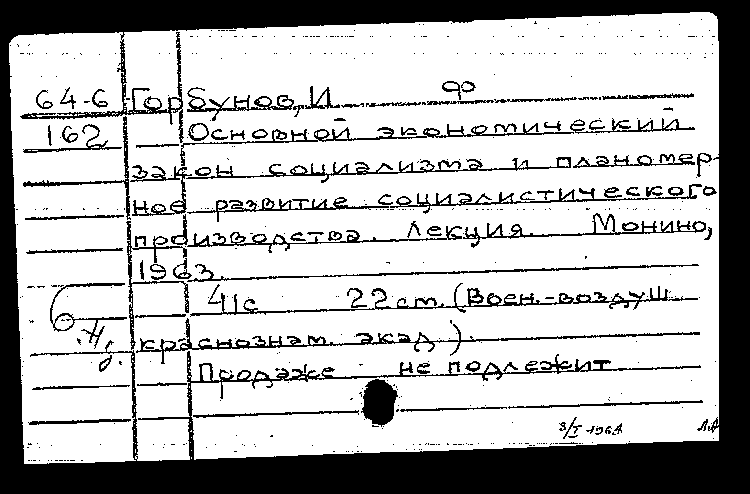 64-6 Горбунов, И Ф
162 Основной экономический
закон социализма и планомер-
ное развитие социалистического
производства. Лекция. Монино,
1963.
41с 22 ст. (Воен.-воздуш
краснознам. акад).
Продаже не подлежит
3/I 1964